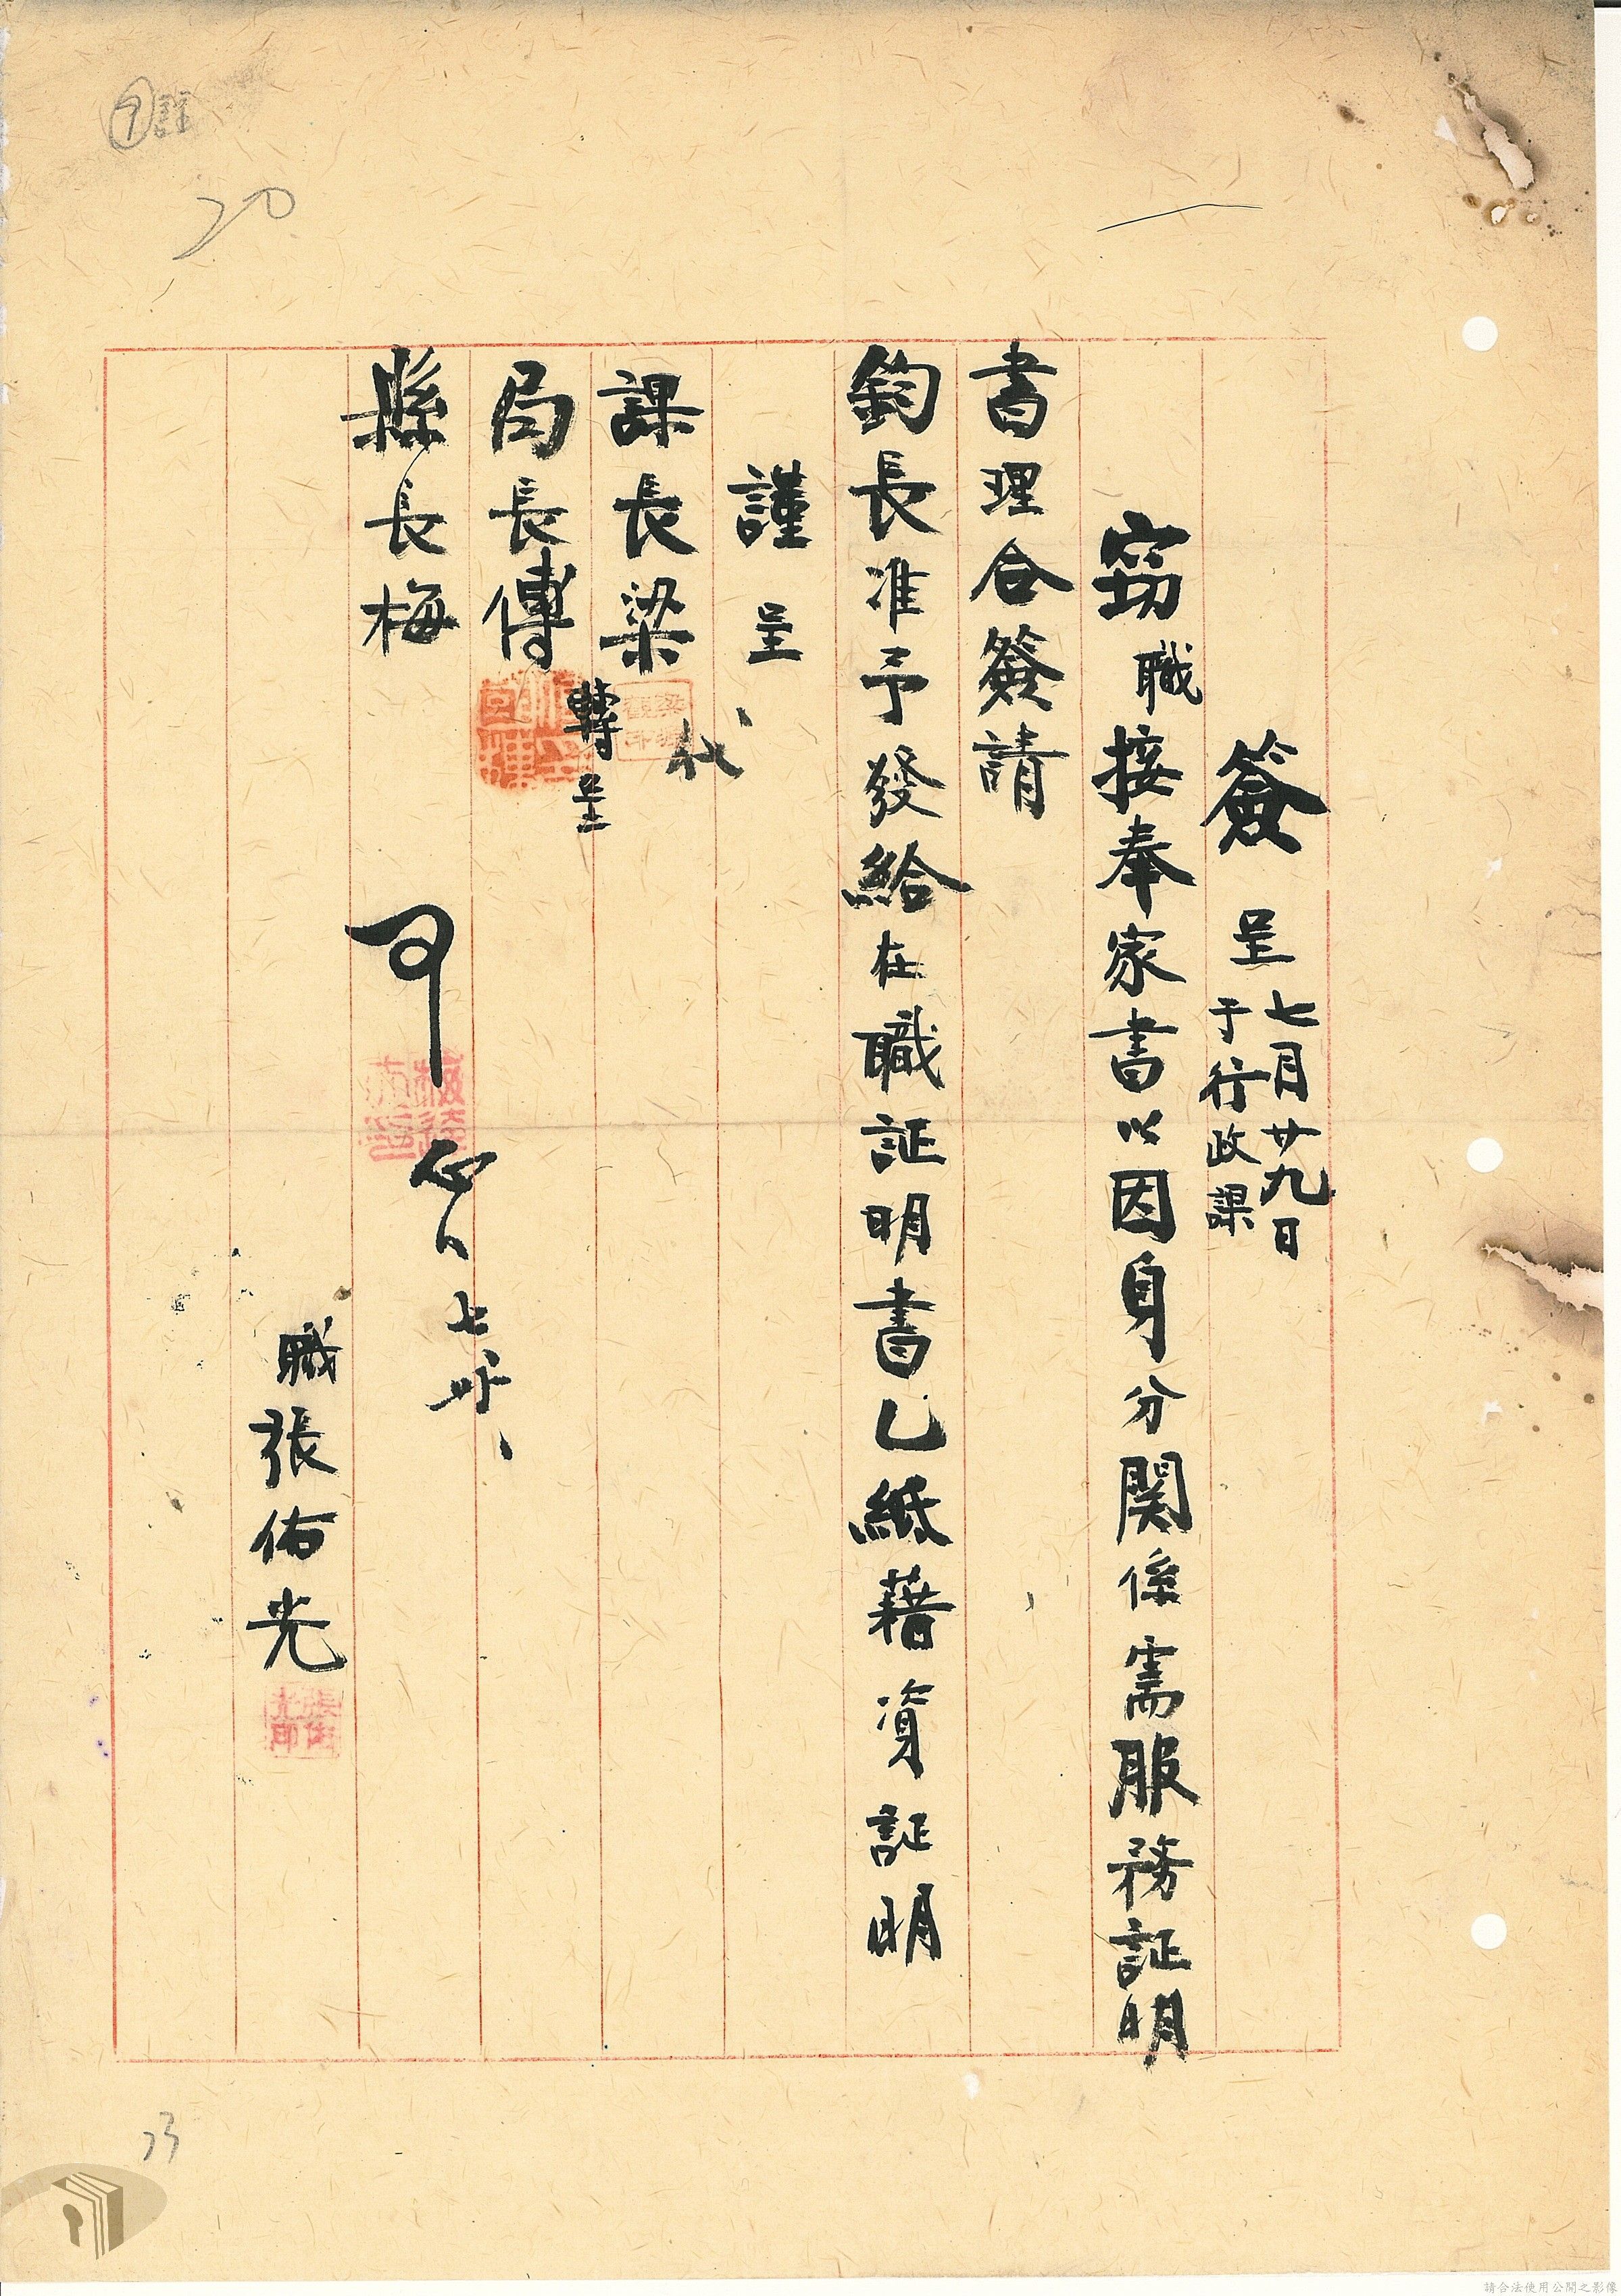 簽呈 七月廿九日
于行政課
窃職接奉家書以因身分関係需服務証明
書理合簽請
鈞長准予發給在職証明書乙紙藉資証明
謹呈
課長梁 代
轉呈
局長傅
縣長梅
可
職張佑光
張佑光印
20
23
請合法使用公開之影像